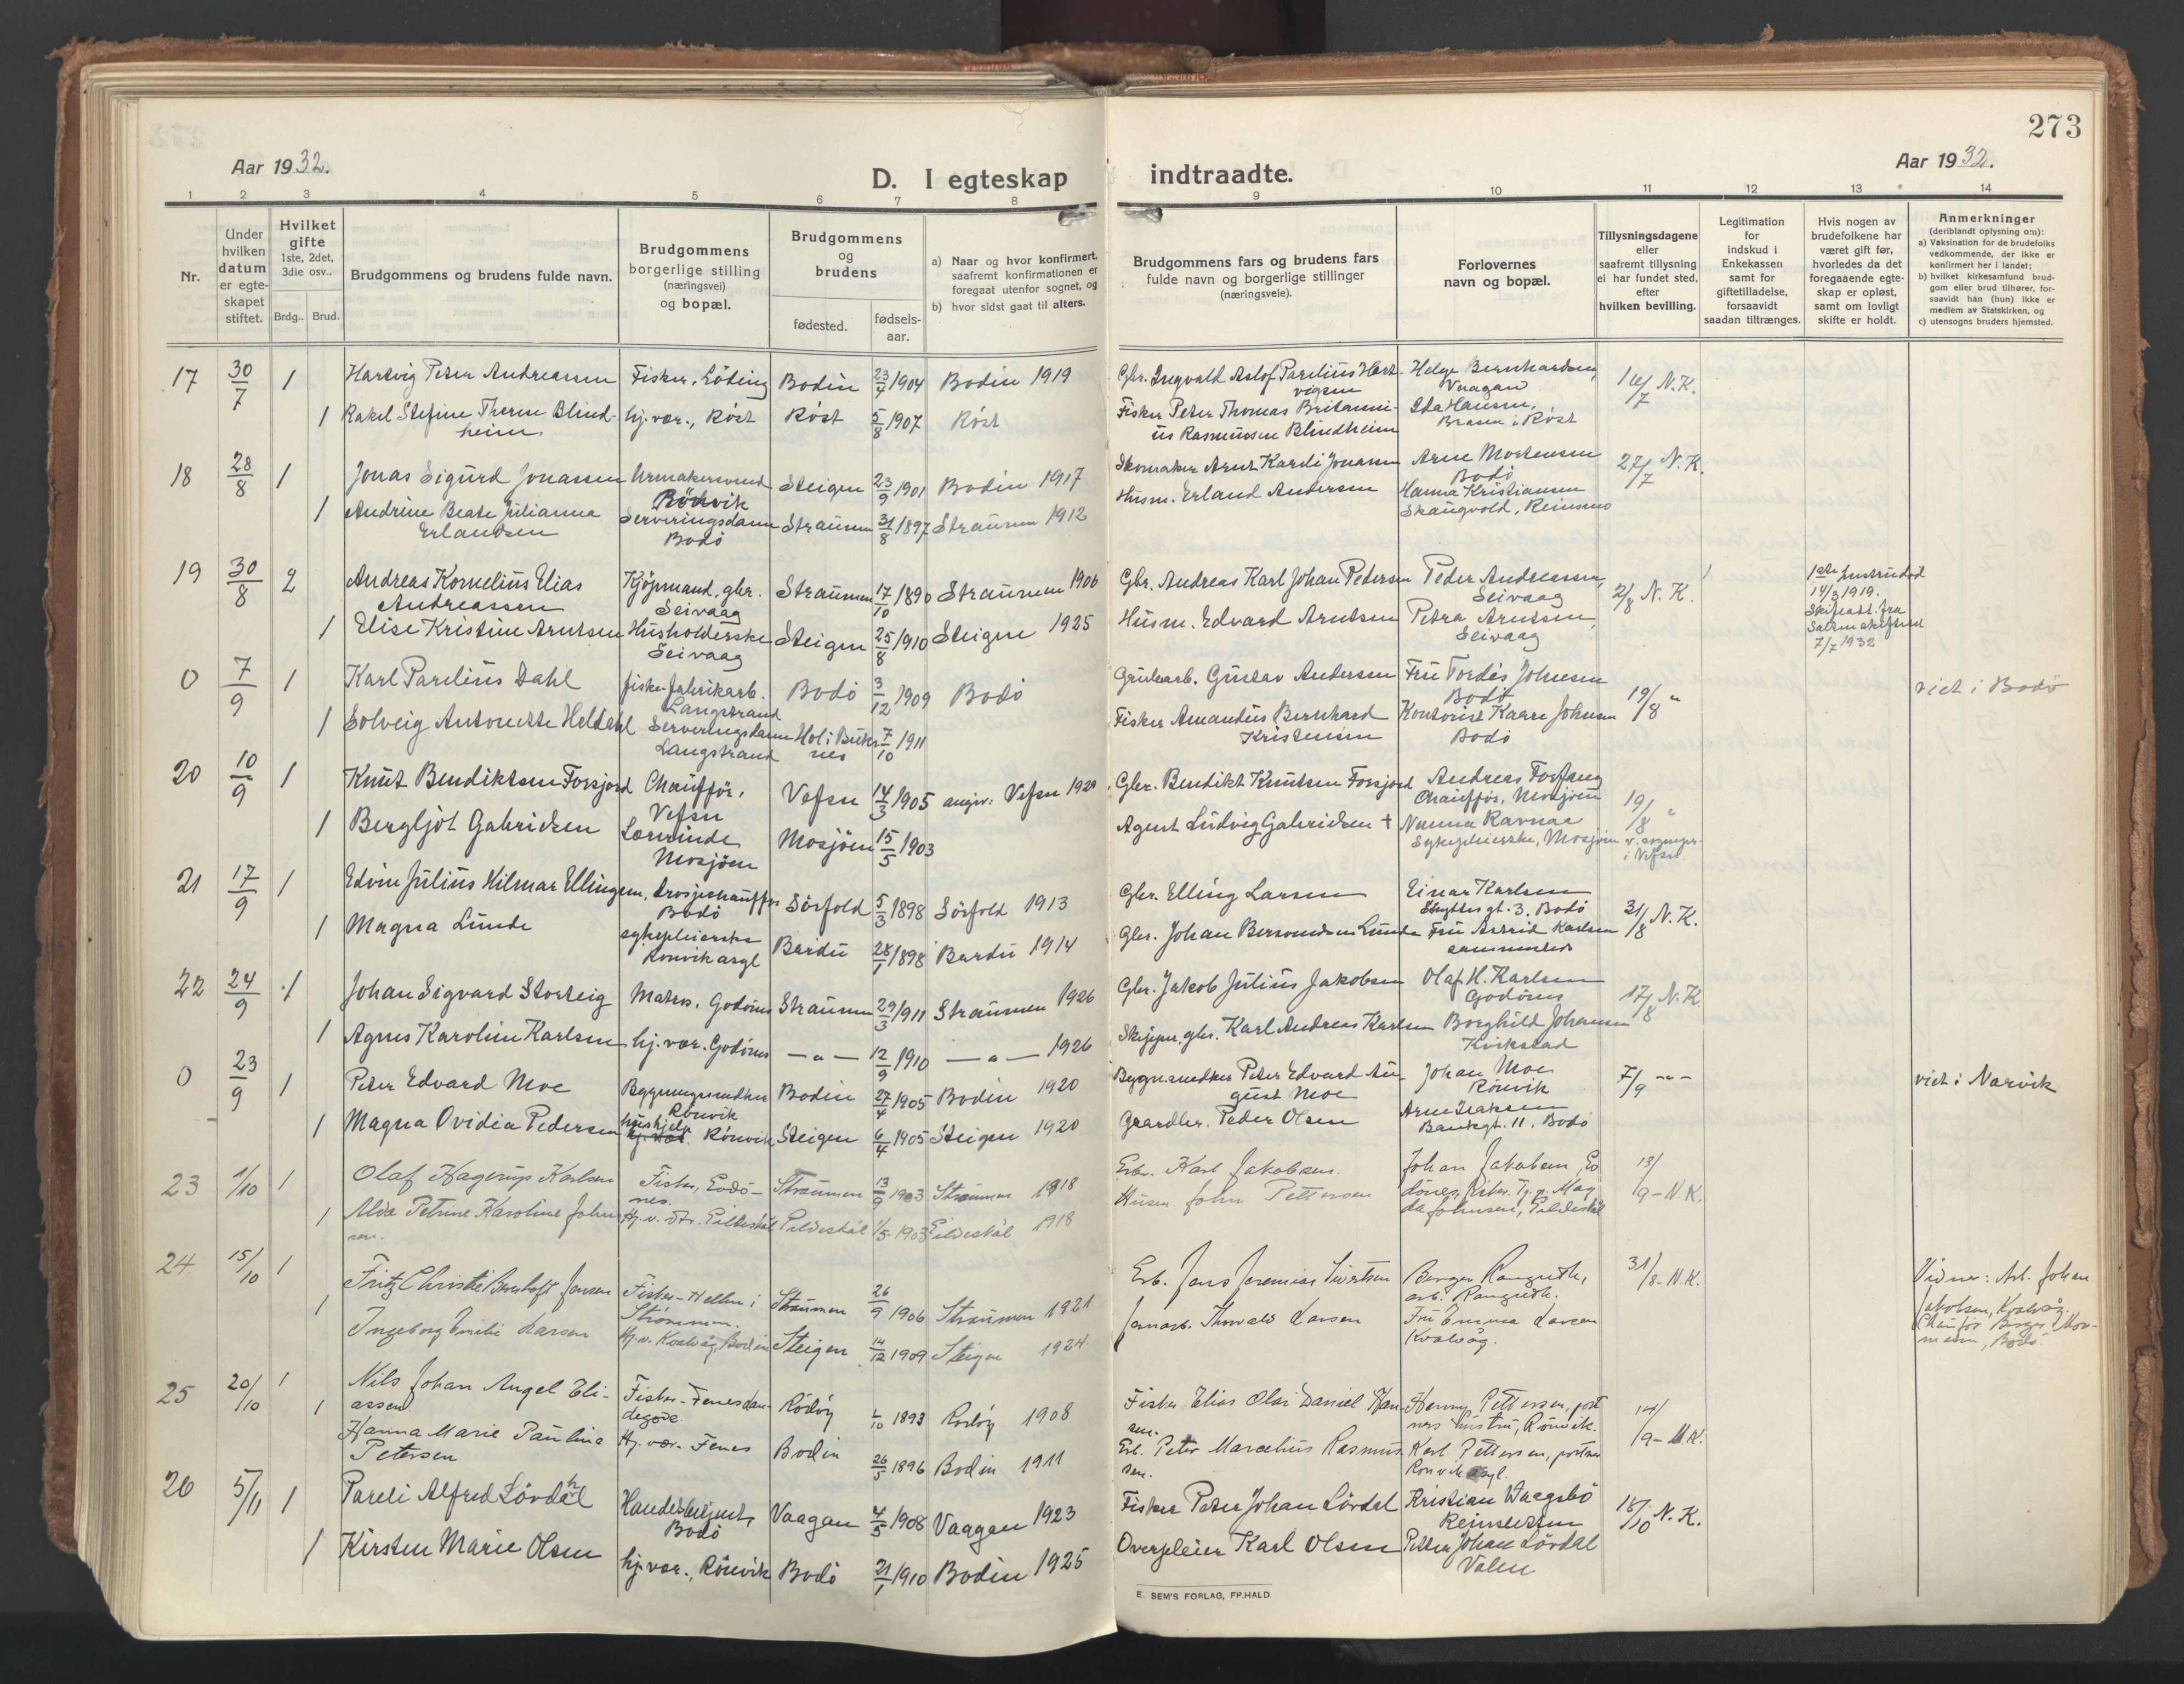 273
Aar 1932.
D. I egteskap indtraadte.
Aar 1932.
1 2 3 4 5 6 7 8 9 10 11 12 13 14
Nr.
Under hvilken datum er egteskapet stiftet.
Hvilket gifte 1ste, 2det, 3die osv..
Brdg.. Brud.
Brudgommens og brudens fulde navn.
Brudgommens borgerlige stilling (næringsvei) og bopæl.
Brudgommens og brudens
fødested. fødsels-aar.
a) Naar og hvor konfirmert, saafremt konfirmationen er foregaat utenfor sognet, og
b) hvor sidst gaat til alters.
Brudgommens fars og brudens fars fulde navn og borgerlige stillinger (næringsveie).
Forlovernes navn og bopæl.
Tillysningsdagene eller saafremt tillysning ei har fundet sted, efter hvilken bevilling.
Legitimation for indskud i Enkekassen samt for giftetilladelse, forsaavidt saadan tiltrænges.
Hvis nogen av brudefolkene har været gift før, hvorledes da det foregaaende egteskap er opløst, samt om lovligt skifte er holdt.
Anmerkninger (deriblandt oplysning om):
a) Vaksination for de brudefolks vedkommende, der ikke er konfirmert her i landet;
b) hvilket kirkesamfund brudgom eller brud tilhører, forsaavidt han (hun) ikke er medlem av Statskirken, og
c) utensogns bruders hjemsted.
17 30/7 1 Hartvig Peter Andreassen Fisker, Löding Bodin 23/4 1904 Bodin 1919 Gbr. Ingvald Astof Parelius Hartvigsen Helge Bernhardsen, Vaagan 16/7 N.K.
1 Rakel Stefine Therese Blindheim hj. vær., Røst Røst 5/8 1907 Røst Fisker Peter Thomas Britannius Rasmussen Blindheim Ida Hansen, Brasen i Røst
18 28/8 1 Jonas Sigurd Jonassen Urmakersvend Rönvik Steigen 23/9 1901 Bodin 1917 Skomaker Arnt Kareli Jonassen Arne Mortensen Bodö 27/7 N.K.
1 Andrine Beate Julianna Erlandsen Serveringsdame Bodö Straumen 31/8 1897 Straumen 1912 Husm. Erland Andersen Hanna Kristiansen Skaugvold, Reinsnes
19 30/8 2 Andreas Kornelius Elias Andreassen Kjöpmand, gbr. Seivaag Straumen 17/10 1890 Straumen 1906 Gbr. Andreas Karl Johan Petersen Peder Andreassen, Seivaag 2/8 N.K. 1ste hustru död 14/3 1919. Skifteatt. fra Salten skifteret 7/7 1932
1 Elise Kristine Arntsen Husholderske Seivaag Steigen 25/8 1910 Steigen 1925 Husm. Edvard Arntsen Petra Arntsen, Seivaag
0 7/9 1 Karl Parelius Dahl fisker fabrikarb. Langstrand Bodö 3/12 1909 Bodö Grubearb. Gustav Andersen Fru Tordis Johnsen Bodö 19/8 " viet i Bodö
1 Solveig Antonette Heldahl Serveringsdame Langstrand Hol i Buksnes 7/10 1911 Fisker Amandus Bernhard Kristensen Kontorist Kaare Johnsen Bodö
20 10/9 1 Knut Bendiktsen Forsjord Chauffør, Vefsn Vefsn 14/3 1905 angiv: Vefsn 1920 Gbr. Bendikt Knutsen Forsjord Andreas Forfang Chauffør, Mosjöen 19/8 " v. sogneprest i Vefsn.
1 Bergljot Gabrielsen Lærerinde Mosjöen Mosjöen 15/5 1903 Agent Ludvig Gabrielsen + Nanna Ravnaa Sykepleierske, Mosjöen
21 17/9 1 Edvin Julius Hilmar Ellingsen, drosjechauffør Bodö Sörfold 5/3 1898 Sörfold 1913 Gbr. Elling Larsen Einar Karlsen Skyttergt. 3. Bodö 31/8 N.K.
1 Magna Lunde sykepleierske Rönvik asyl Bardu 28/1 1898 Bardu 1914 Gbr. Johan Bersvendsen Lunde Fru Astrid Karlsen sammesteds
22 24/9 1 Johan Sigvard Storteig Matros, Godönes Straumen 29/3 1911 Straumen 1926 Gbr. Jakob Julius Jakobsen Olaf H. Karlsen Godönes 17/8 N.K.
1 Agnes Karoline Karlsen hj. vær. Godönes — " — 12/9 1910 — " — 1926 Skipper, gbr. Karl Andreas Karlsen Borghild Johansen Kvikstad
0 23/9 1 Peter Edvard Moe Bygningssnedker Rönvik Bodin 27/4 1905 Bodin 1920 Bygn.snedker Peter Edvard August Moe Johan Moe Rönvik 7/9 -"- viet i Narvik
1 Magna Ovidia Pedersen hushjelp Rönvik Steigen 6/4 1905 Steigen 1920 Gaardbr. Peder Olsen Arne Isaksen Bankgt. 11. Bodö
23 1/10 1 Olaf Hagerup Karlsen Fisker, Godönes. Straumen 13/9 1903 Straumen 1918 Gbr. Karl Jakobsen. Johan Jakobsen, Godönes, 13/9 - N.K.
1 Alda Petrine Karoline Johnsen. Hj. v. dtr. Gildeskål Gildeskål 1/5 1903 Gildeskål 1918 Husm. John Pettersen Magda Johnsen, Gildeskål
24 15/10 1 Fritz Christie Bernhoft Jensen Fisker - Hellen i Strömmen. Straumen 26/9 1906 Straumen 1921 Gbr. Jens Jeremias Sivertsen Berger Rangseth, arb. Rangseth. 31/8 - N.K. Vidner: Arb. Johan Jakobsen, Kvalvåg. Chauför Berger Thormann, Bodö
1 Ingeborg Emilie Larsen Hj. v. Kvalvåg, Bodin Steigen 14/12 1909 Steigen 1924 Jernarb. Thorvald Larsen Fru Emma Larsen Kvalvåg.
25 20/10 1 Nils Johan Angel Eliassen Fisker - Fenes Landegode Rödöy 1/10 1893 Rödöy 1908 Fisker Elias Olai Daniel Hansen. Henny Pettersen, portners hustru, Rönvik. 14/9 - N.K.
1 Hanna Marie Pauline Petersen Hj. vær. Fenes Bodin 26/5 1896 Bodin 1911 Gbr. Peter Marcelius Rasmussen. Karl Pettersen, portner Rönvik asyl.
26 5/11 1 Pareli Alfred Lövdahl Handelsbetjent, Bodö Vaagan 4/5 1908 Vaagan 1923 Fisker Peter Johan Lövdal Kristian Waagsbö Reinsletten 18/10 N.K.
1 Kirsten Marie Olsen hj. vær., Rönvik Bodö 21/1 1910 Bodin 1925 Overpleier Karl Olsen Petter Johan Lövdal Valen
E. SEM'S FORLAG, FR.HALD